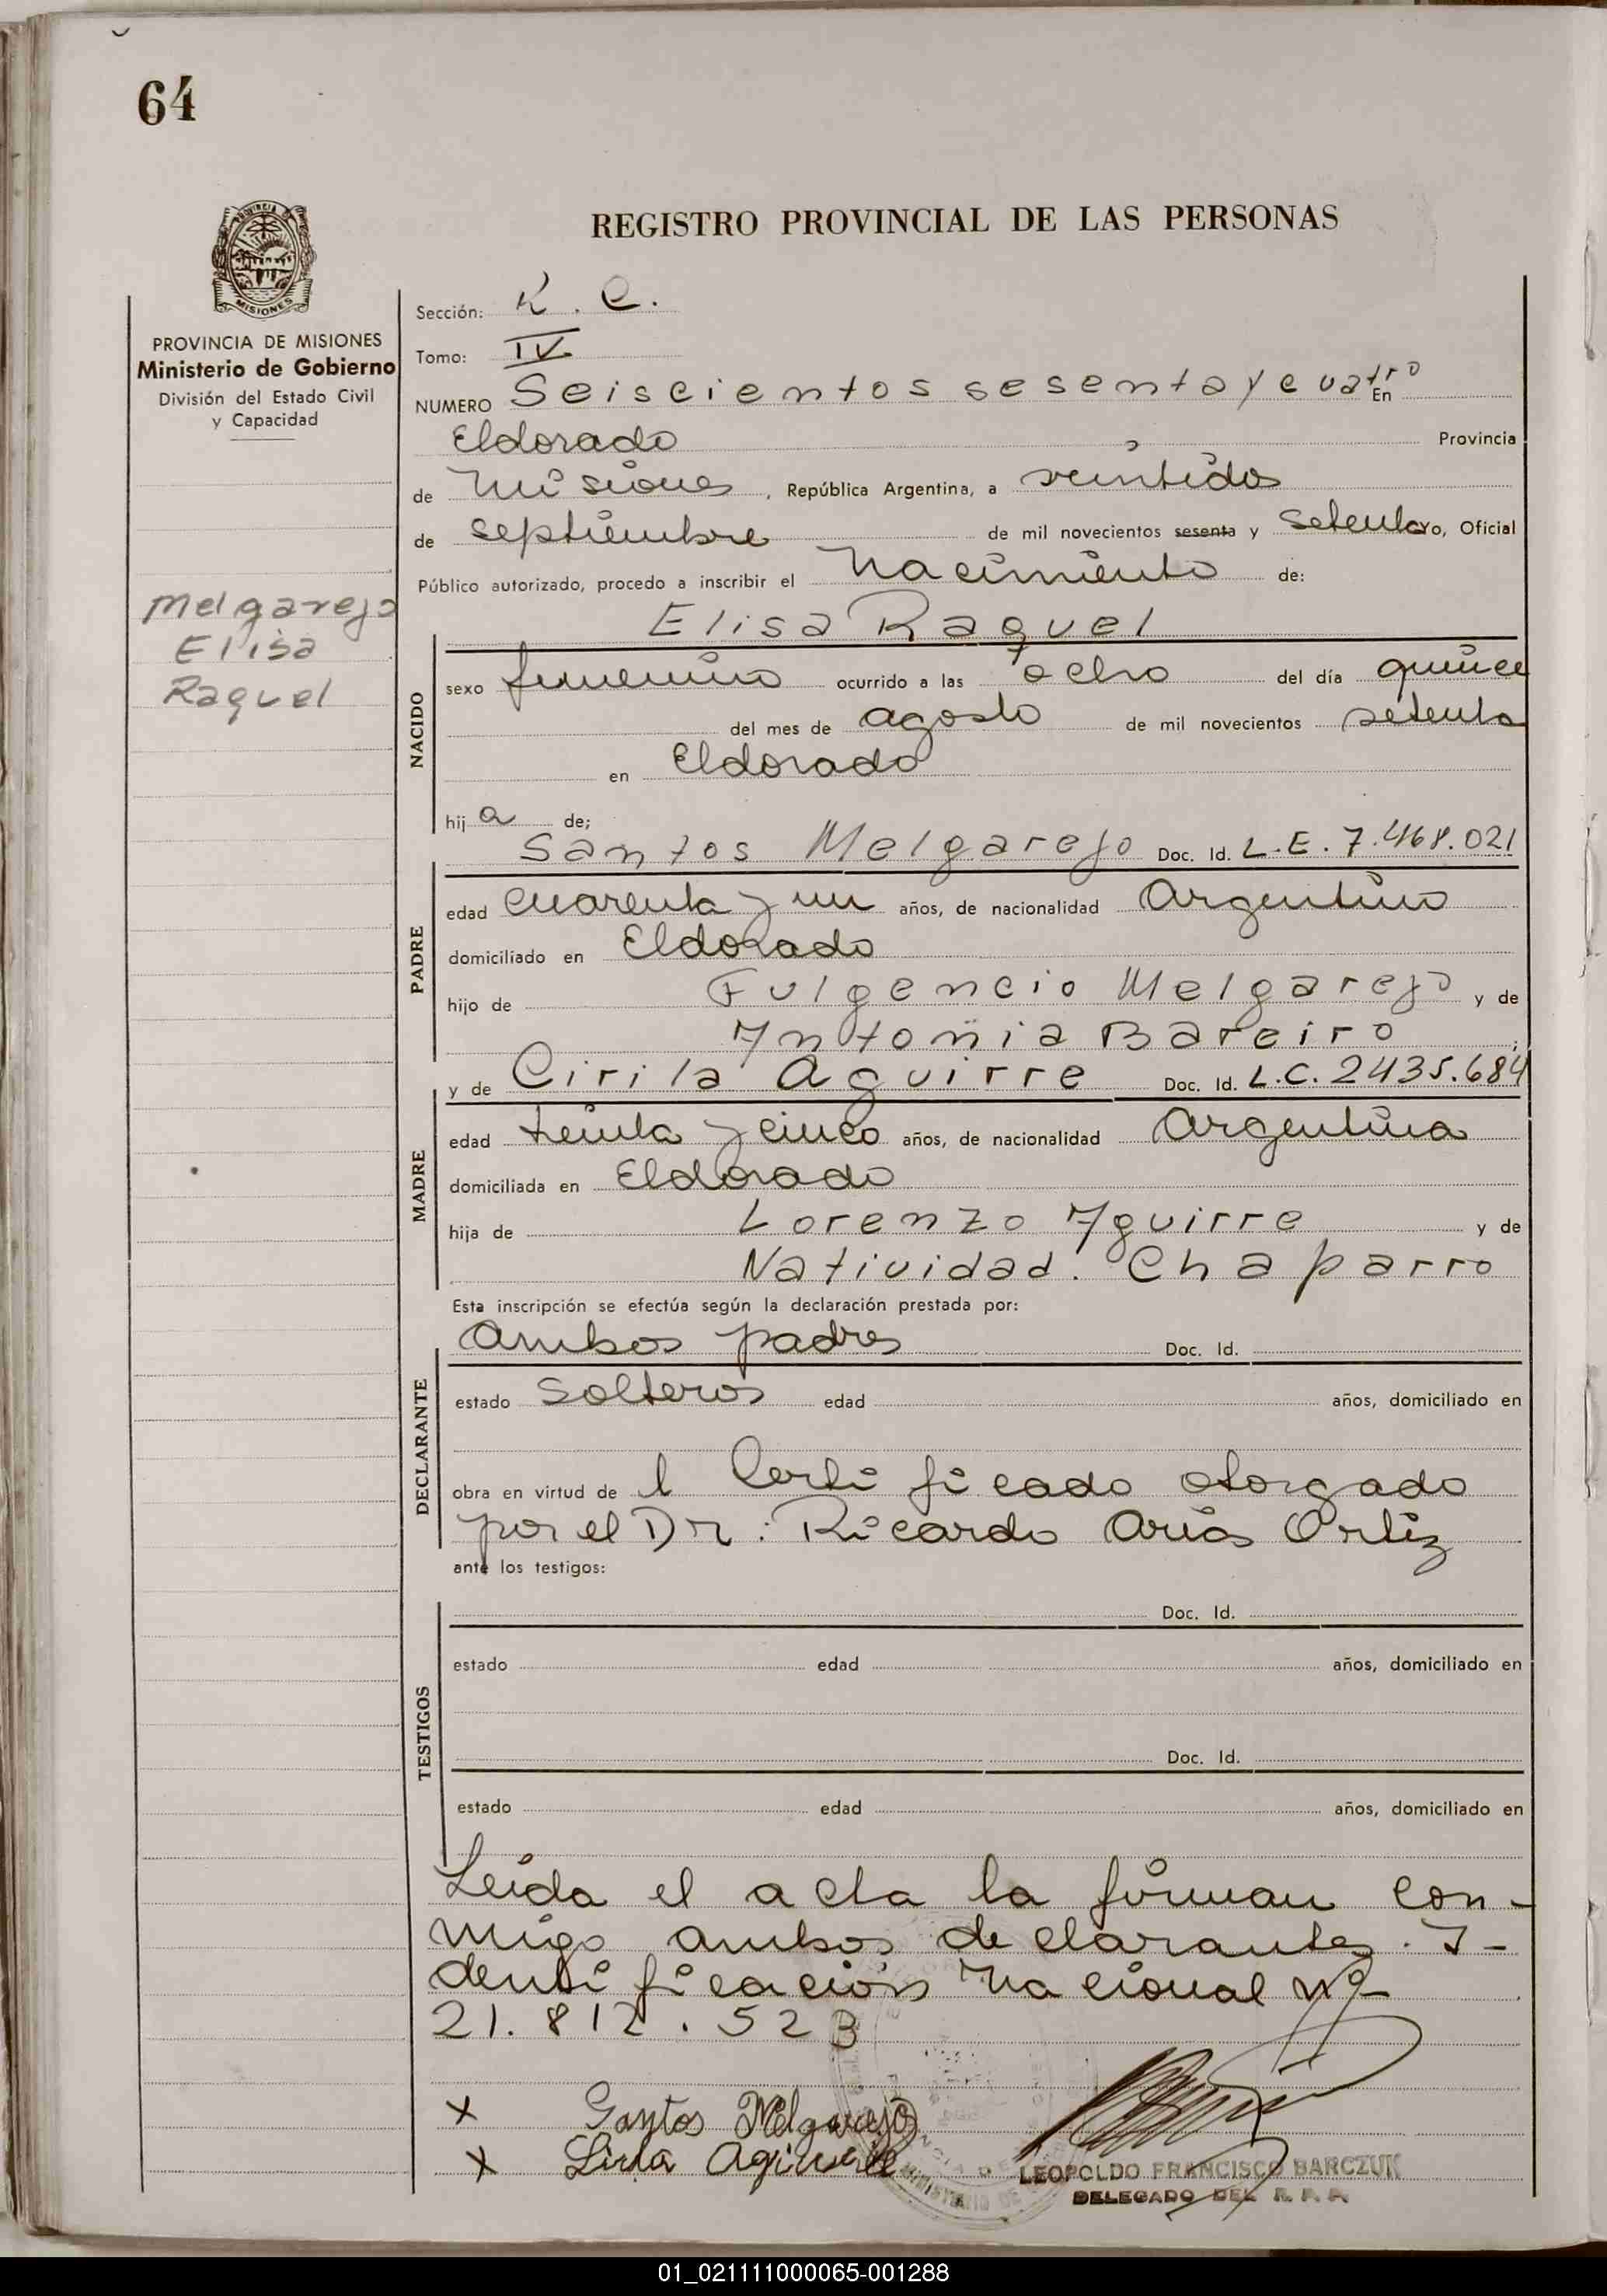 64
REGISTRO PROVINCIAL DE LAS PERSONAS
PROVINCIA DE MISIONES
Ministerio de Gobierno
División del Estado Civil
y Capacidad
Melgarejo
Elisa
Raquel
Sección: K. C.
Tomo: IV
NUMERO Seiscientos sesenta y cuatro En
Eldorado, Provincia
de Misiones, República Argentina, a veintidos
de septiembre de mil novecientos sesenta y setenta yo, Oficial
Público autorizado, procedo a inscribir el Nacimiento de:
Elisa Raquel
NACIDO
sexo femenino ocurrido a las ocho del día quince
del mes de agosto de mil novecientos setenta
en Eldorado
hija de;
Santos Melgarejo Doc. Id. L.E. 7.468.021
PADRE
edad cuarenta y un años, de nacionalidad Argentino
domiciliado en Eldorado
hijo de Fulgencio Melgarejo y de
Antonia Bareiro
y de Cirila Aguirre Doc. Id. L.C. 2435.684
MADRE
edad treinta y cinco años, de nacionalidad Argentina
domiciliada en Eldorado
hija de Lorenzo Aguirre y de
Natividad. Chaparro
Esta inscripción se efectúa según la declaración prestada por:
Ambos padres Doc. Id.
DECLARANTE
estado solteros edad años, domiciliado en
obra en virtud de l Certificado otorgado
por el Dr: Ricardo Arias Ortiz
ante los testigos:
TESTIGOS
Doc. Id.
estado edad años, domiciliado en
Doc. Id.
estado edad años, domiciliado en
Leida el acta la firman con-
migo ambos declarantes. I-
dentificación Nacional Nº
21.812.523
x Santos Melgarejo
x Agirre
LEOPOLDO FRANCISCO BARCZUK
DELEGADO DEL R. P. P.
01_021111000065-001288